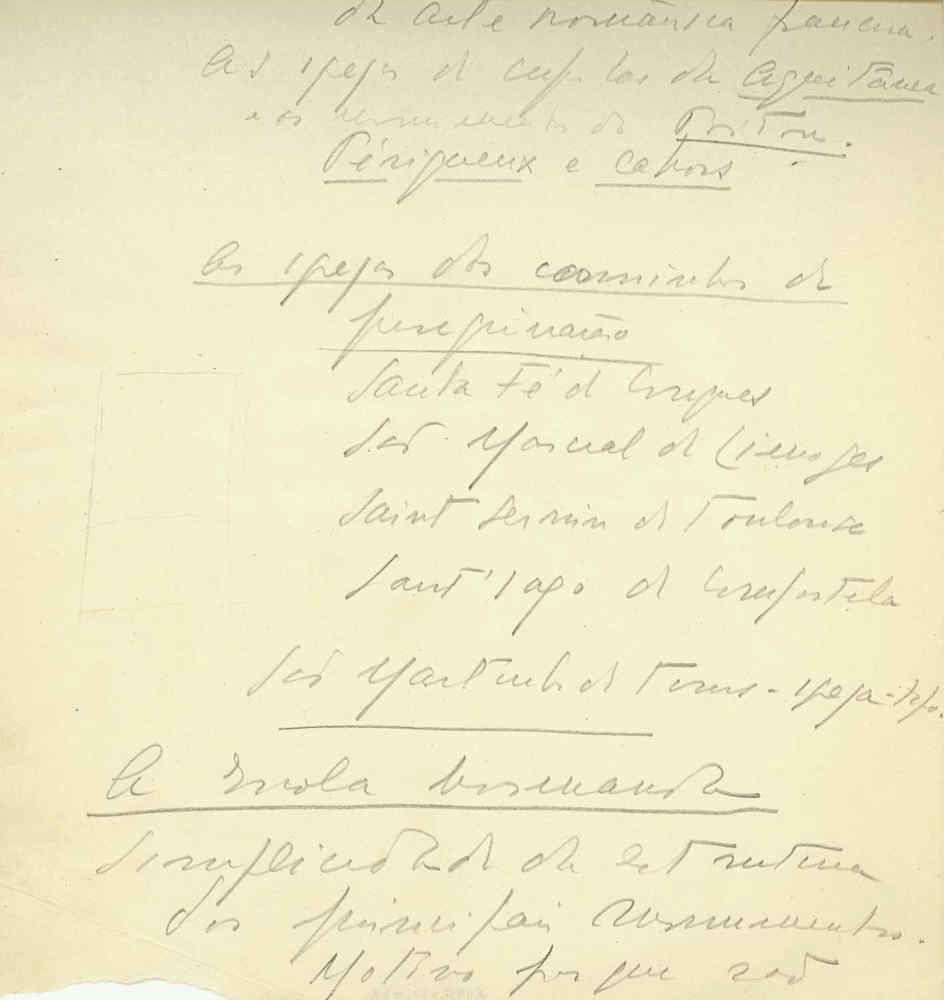 da arte românica francesa.
As igrejas de cupulas da Aquitânea
e os monumentos do Poitou.
Périgueux e Cahors
As igrejas dos caminhos de
peregrinação
Santa Fé de Conques
São Marcial de Limoges
Saint Sernin de Toulouse
Sant'Iago de Compostela
São Martinho de Tours - igreja-tipo.
A Escola Normanda
Simplicidade da estrutura
dos principais monumentos.
Motivo porque são